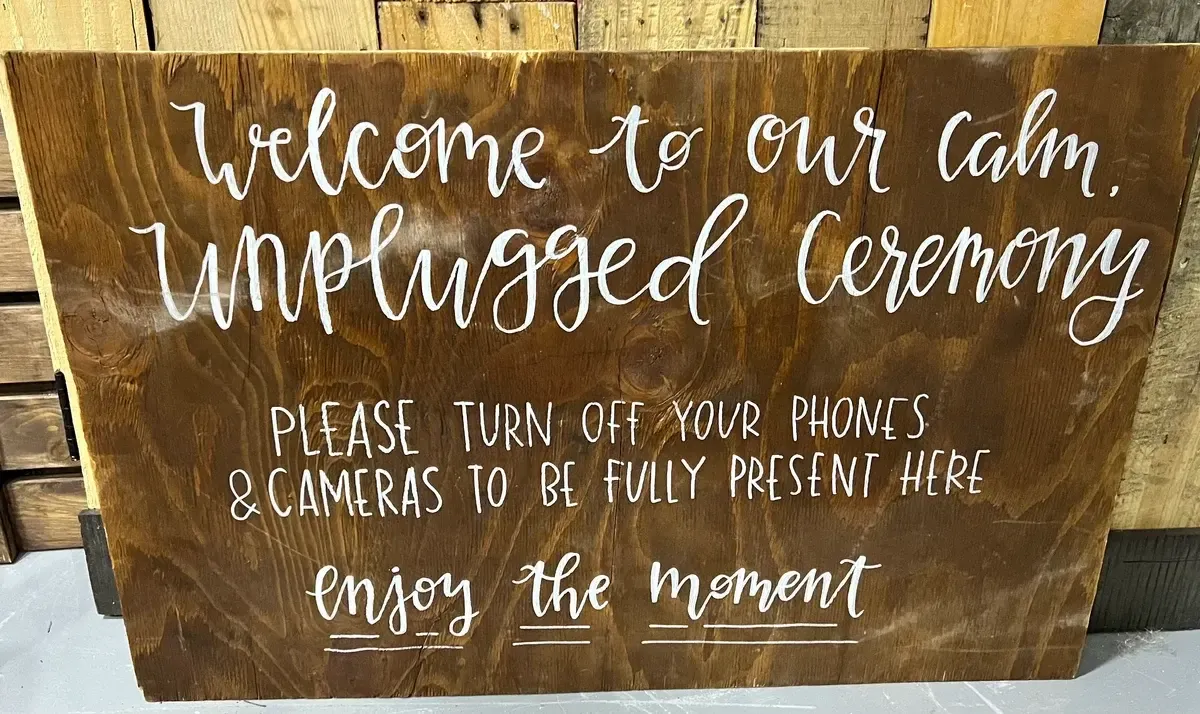 Welcome to our calm,
Unplugged Ceremony
PLEASE TURN OFF YOUR PHONES
& CAMERAS TO BE FULLY PRESENT HERE
enjoy the moment